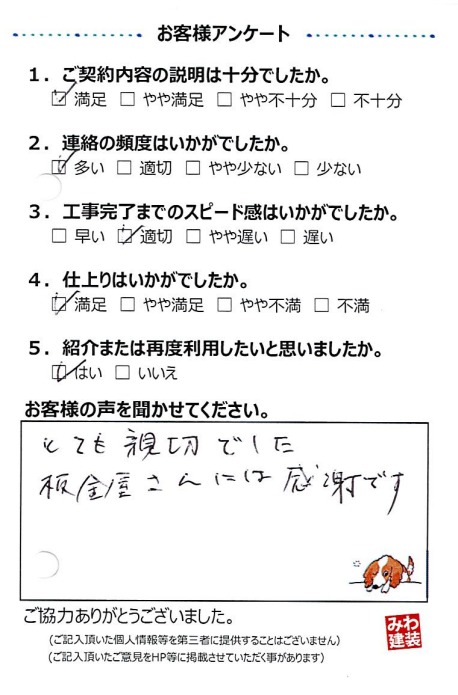 お客様アンケート
1．ご契約内容の説明は十分でしたか。
☑ 満足 □ やや満足 □ やや不十分 □ 不十分
2．連絡の頻度はいかがでしたか。
☑ 多い □ 適切 □ やや少ない □ 少ない
3．工事完了までのスピード感はいかがでしたか。
□ 早い ☑ 適切 □ やや遅い □ 遅い
4．仕上りはいかがでしたか。
☑ 満足 □ やや満足 □ やや不満 □ 不満
5．紹介または再度利用したいと思いましたか。
☑ はい □ いいえ
お客様の声を聞かせてください。
とても親切でした
板金屋さんには感謝です
ご協力ありがとうございました。
(ご記入頂いた個人情報等を第三者に提供することはございません)
(ご記入頂いたご意見をHP等に掲載させていただく事があります)
みわ
建装